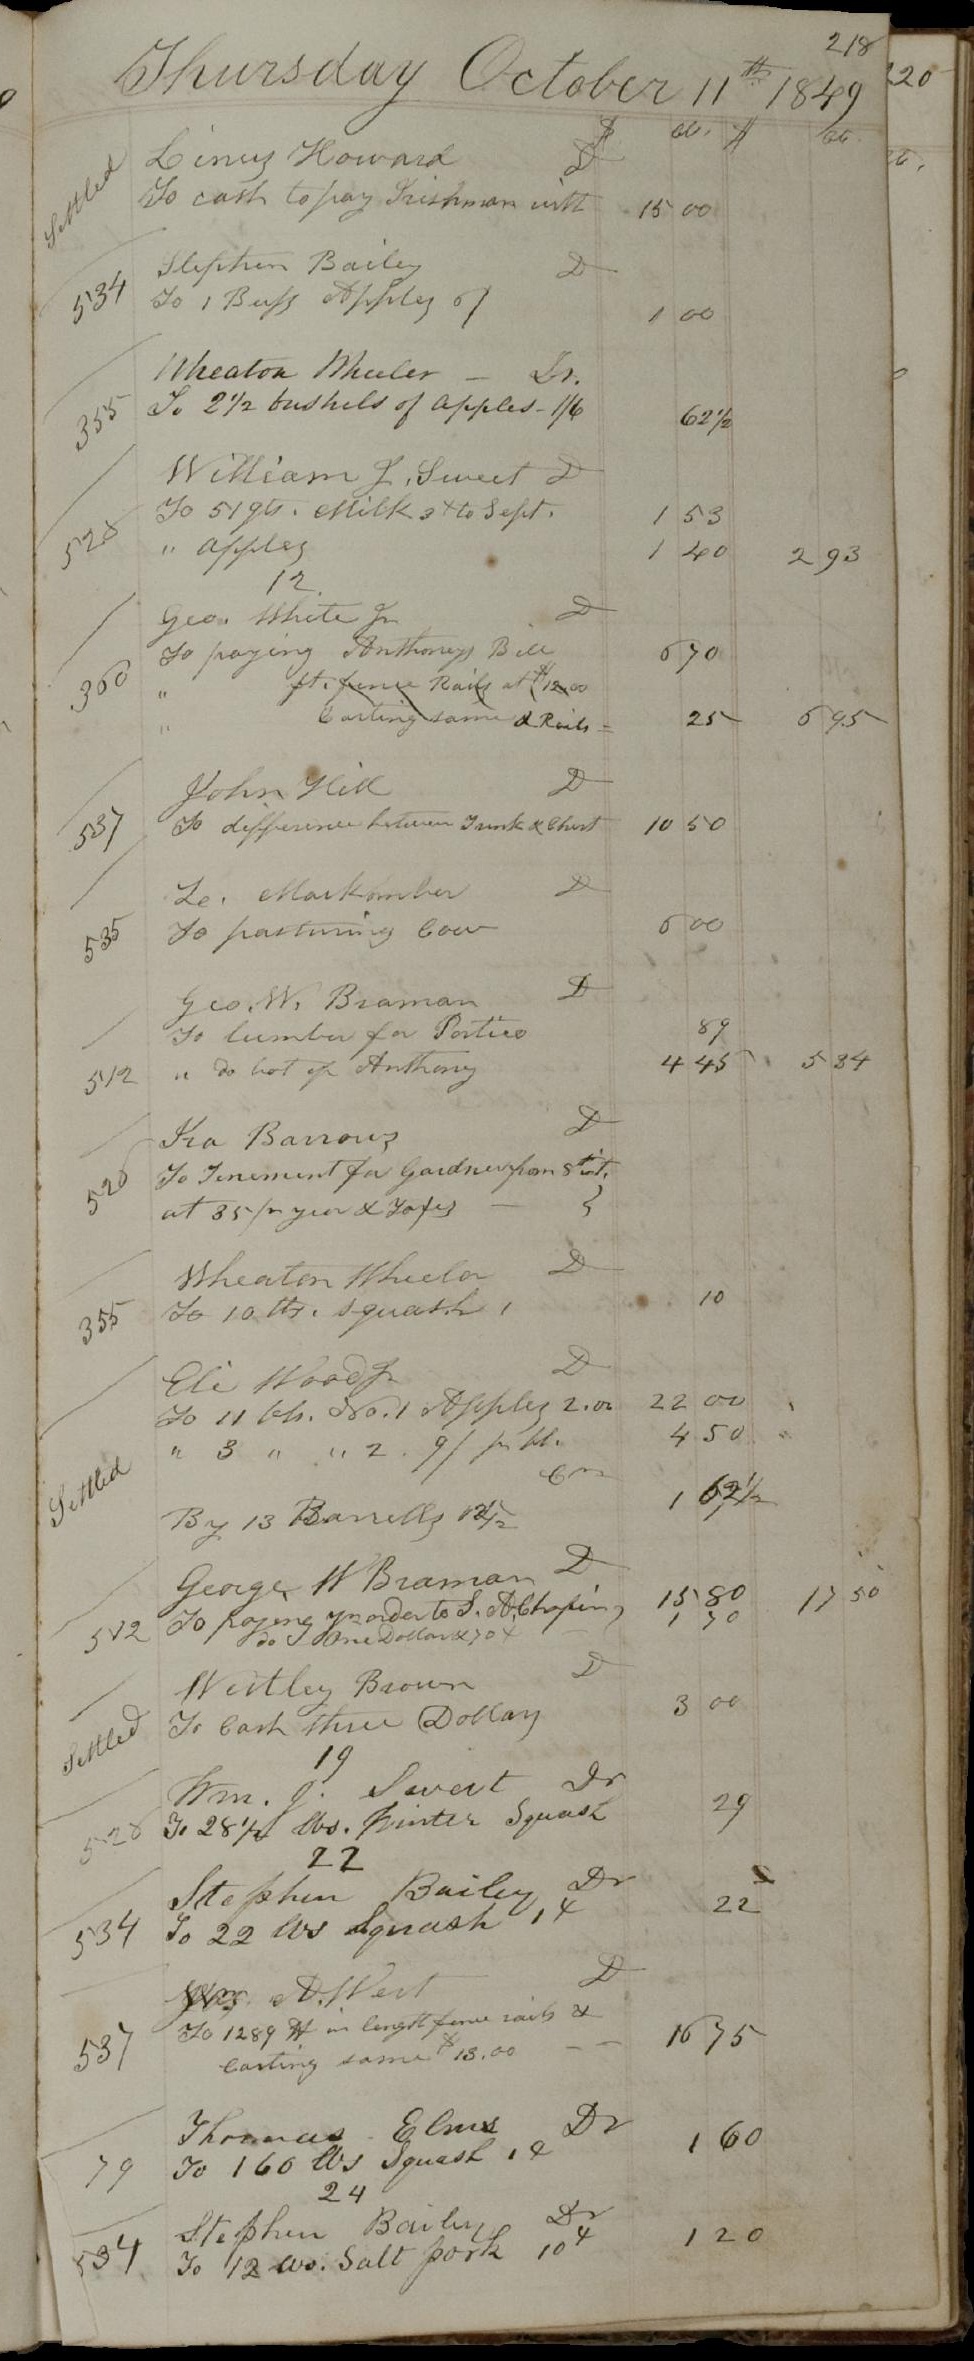 218
Thursday October 11th 1849
$ cts. $ cts.
Settled
Linus Howard D
To cash to pay Irishman with 15 00
534
Stephen Bailey D
To 1 Bush Apples 6/ 1 00
355
Wheaton Wheeler — Dr.
To 2 1/2 bushels of apples - 1/6 62 1/2
528
William J. Sweet D
To 51 qts. Milk 3¢ to Sept. 1 53
" apples 1 40 2 93
12
360
Geo. White Jr D
To paying Anthonys Bill 6 70
" ft. fence Rails at $12.00
" Carting same & Rails = 25 6 95
537
John Hill D
To difference between Trunk & Chest 10 50
535
Le. Markomber D
To pasturing Cow 6 00
512
Geo. W. Braman D
To lumber for Portico 89
" do bot of Anthony 4 45 5 34
526
Ira Barrows D
To Tenement for Gardner from 8th inst.
at 35 / pr year & Taxes —
355
Wheaton Wheeler D
To 10 lbs. squash, 10
Settled
Eli Wood Jr D
To 11 bls. No. 1 Apples 2.00 22 00
" 3 " " 2. 9/ pr bl. 4 50
Cr
By 13 Barrells 12 1/2 1 62 1/2
512
George W Braman D
To paying yr order to S. A. Chapin, 15 80 17 50
do One Dollar & 70¢ 1 70
Settled
Westley Brown D
To Cash three Dollars 3 00
19
528
Wm. J. Sweet Dr
To 28 1/2 lbs. Winter Squash 29
22
534
Stephen Bailey Dr
To 22 lbs Squash 1¢ 22
537
A. West D
To 1289 ft in length fence rails &
Carting same $13.00 — — 16 75
79
Thomas Elms Dr
To 160 lbs Squash 1¢ 1 60
24
534
Stephen Bailey Dr
To 12 lbs. Salt pork 10¢ 1 20